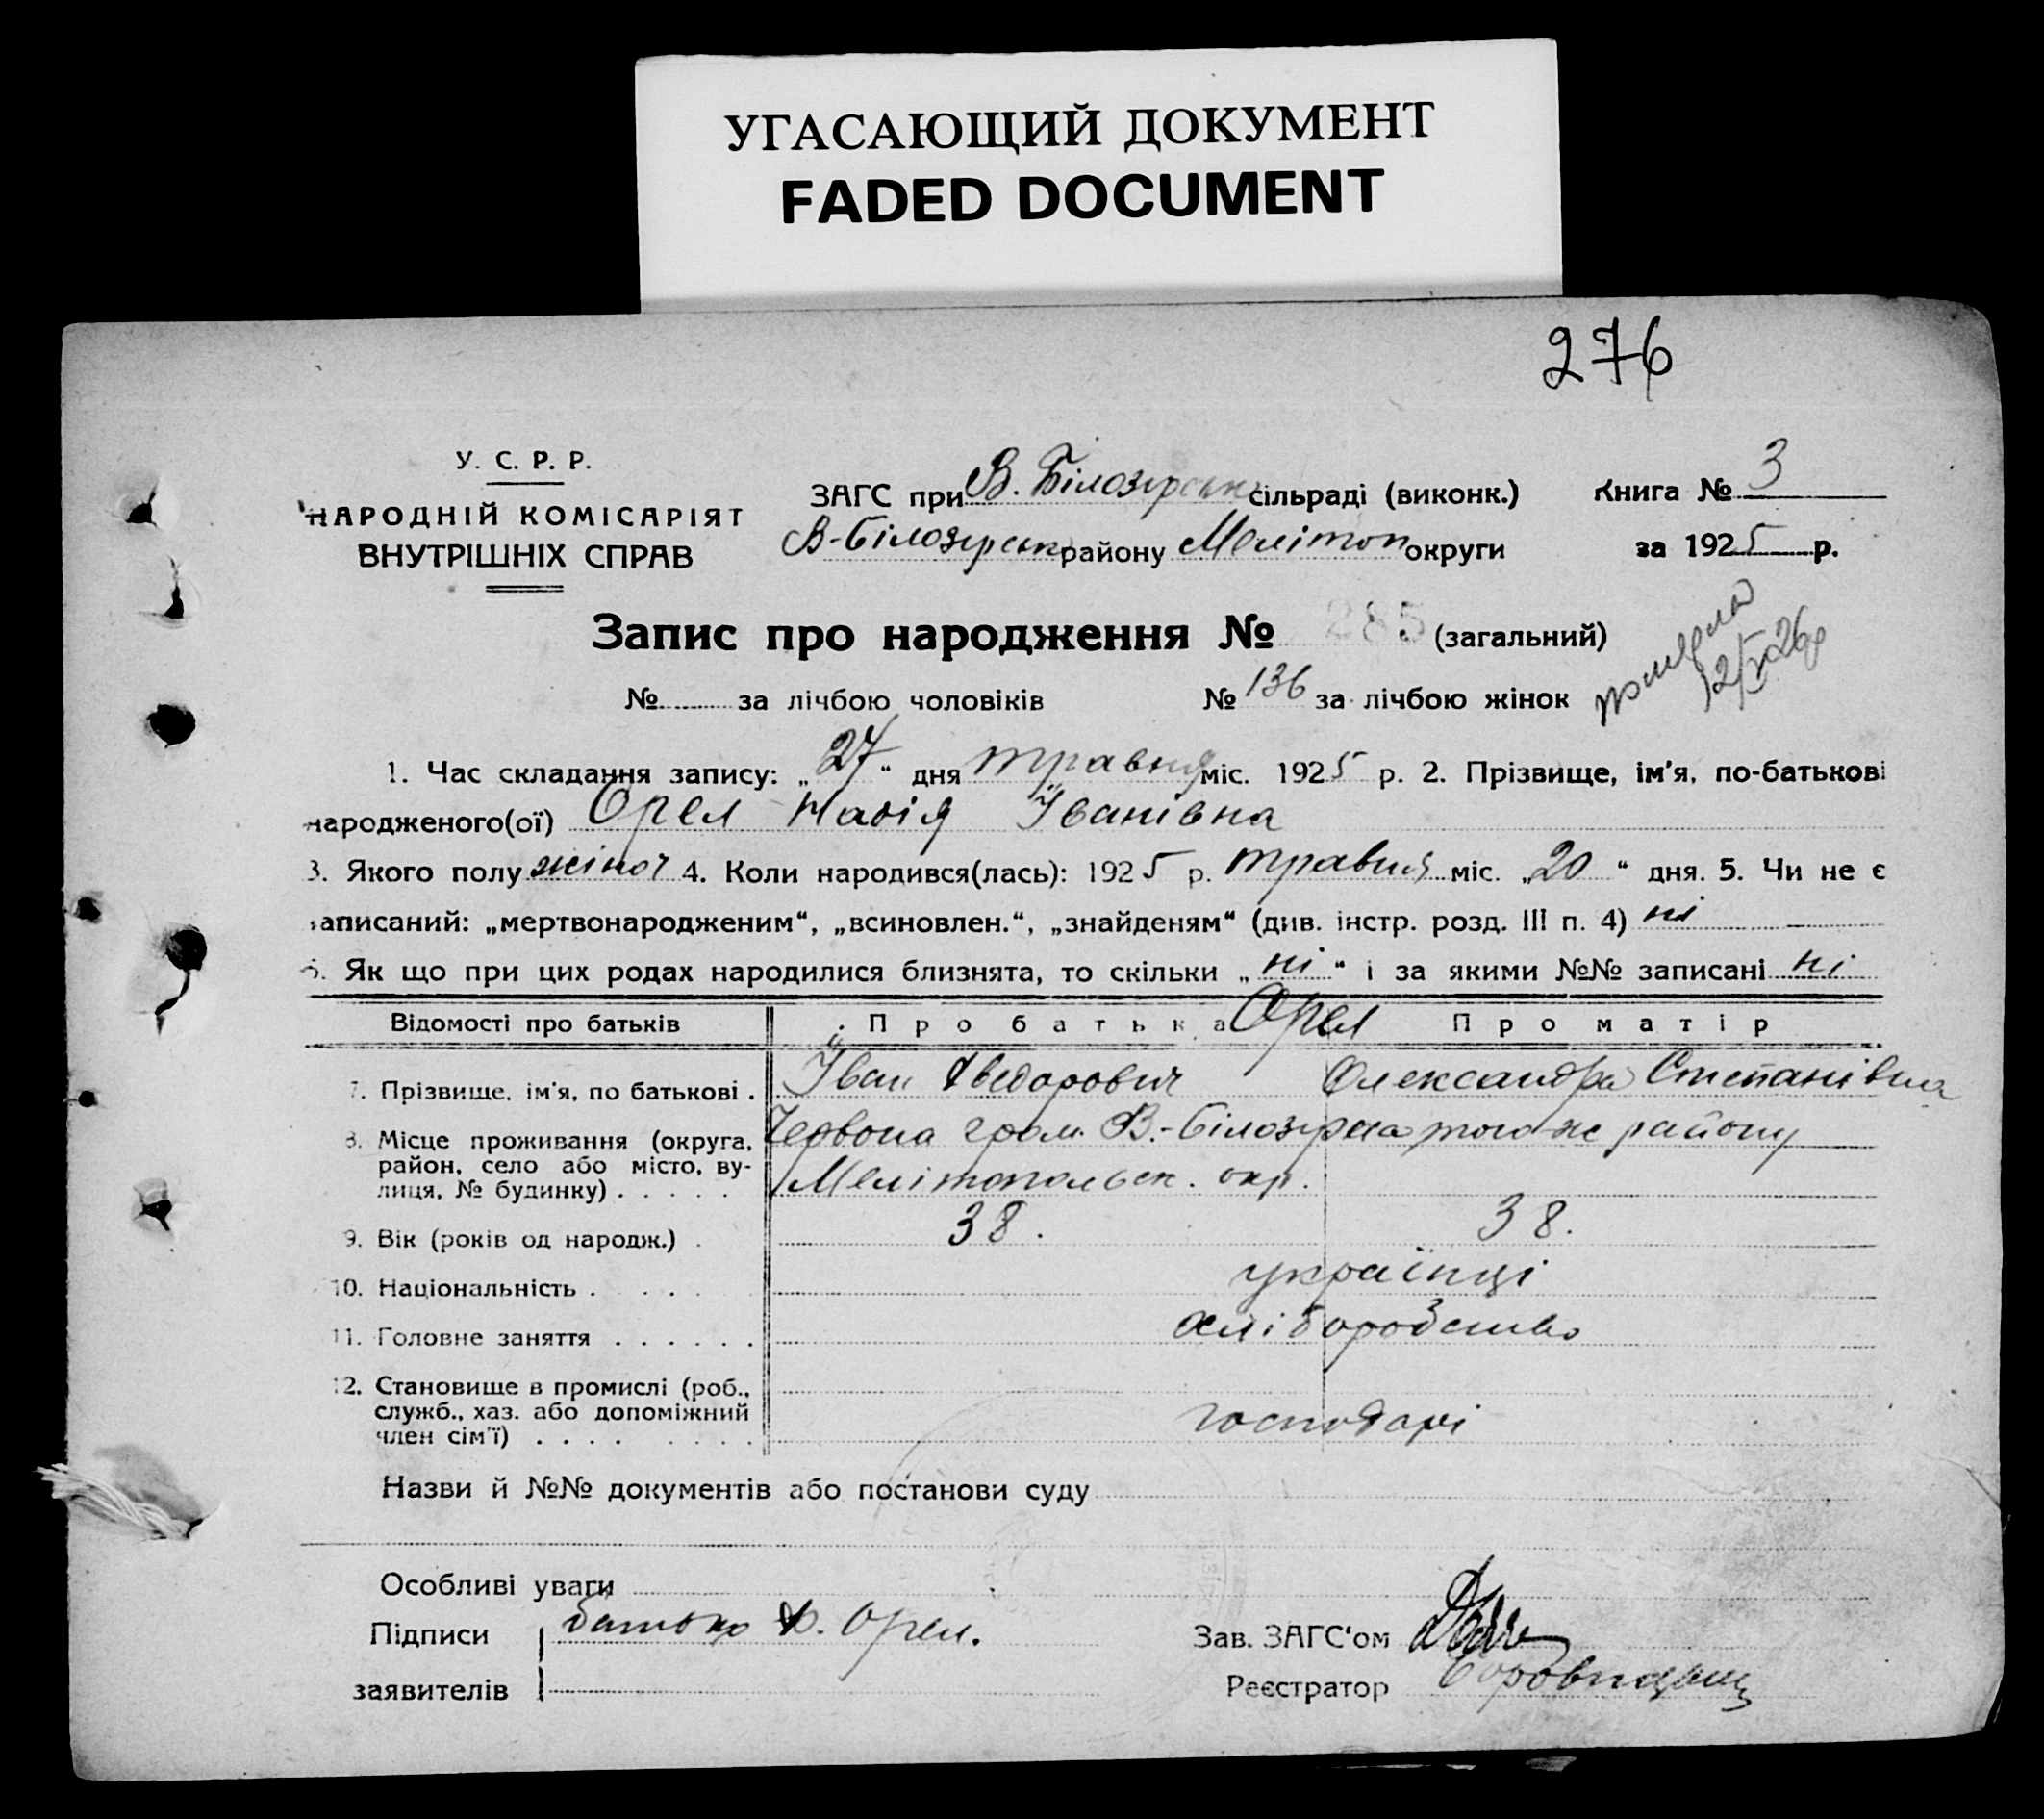 УГАСАЮЩИЙ ДОКУМЕНТ
FADED DOCUMENT
276
У. С. Р. Р.
НАРОДНІЙ КОМІСАРІЯТ
ВНУТРІШНІХ СПРАВ
ЗАГС при В. Білозірськ сільраді (виконк.)
В-Білозірськ району Мелітоп округи
Книга № 3
за 1925 р.
Запис про народження № 285 (загальний)
померла
№ за лічбою чоловіків № 136 за лічбою жінок
1. Час складання запису: „27“ дня травня міс. 1925 р. 2. Прізвище, ім'я, по-батькові
народженого(ої) Орел Іванівна
3. Якого полу жіноч 4. Коли народився(лась): 1925 р. травня міс. „20“ дня. 5. Чи не є
записаний: „мертвонародженим“, „всиновлен.“, „знайденям“ (див. інстр. розд. III п. 4) ні
6. Як що при цих родах народилися близнята, то скільки „ні“ і за якими №№ записані ні
Відомості про батьків Про батька Орел Про матір
7. Прізвище, ім'я, по батькові . Іван Хведорович Олександра Степанівна
8. Місце проживання (округа, Червона гром. В.-Білозірка того-ж району
район, село або місто, ву-
лиця, № будинку) . . . . . Мелітопольск. окр.
9. Вік (років од народж.) . 38. 38.
10. Національність . . . . українці
11. Головне заняття . . . . . . хліборобство
12. Становище в промислі (роб.,
служб., хаз. або допоміжний господарі
член сім'ї) . . . . . . . .
Назви й №№ документів або постанови суду
Особливі уваги
Підписи батько Орел.
заявителів
Зав. ЗАГС'ом
Реєстратор